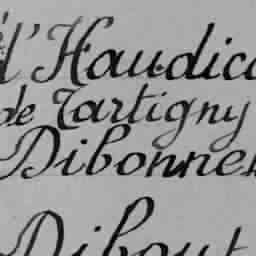 d'Haudic
de Tartigny
Dibonne
Dibout